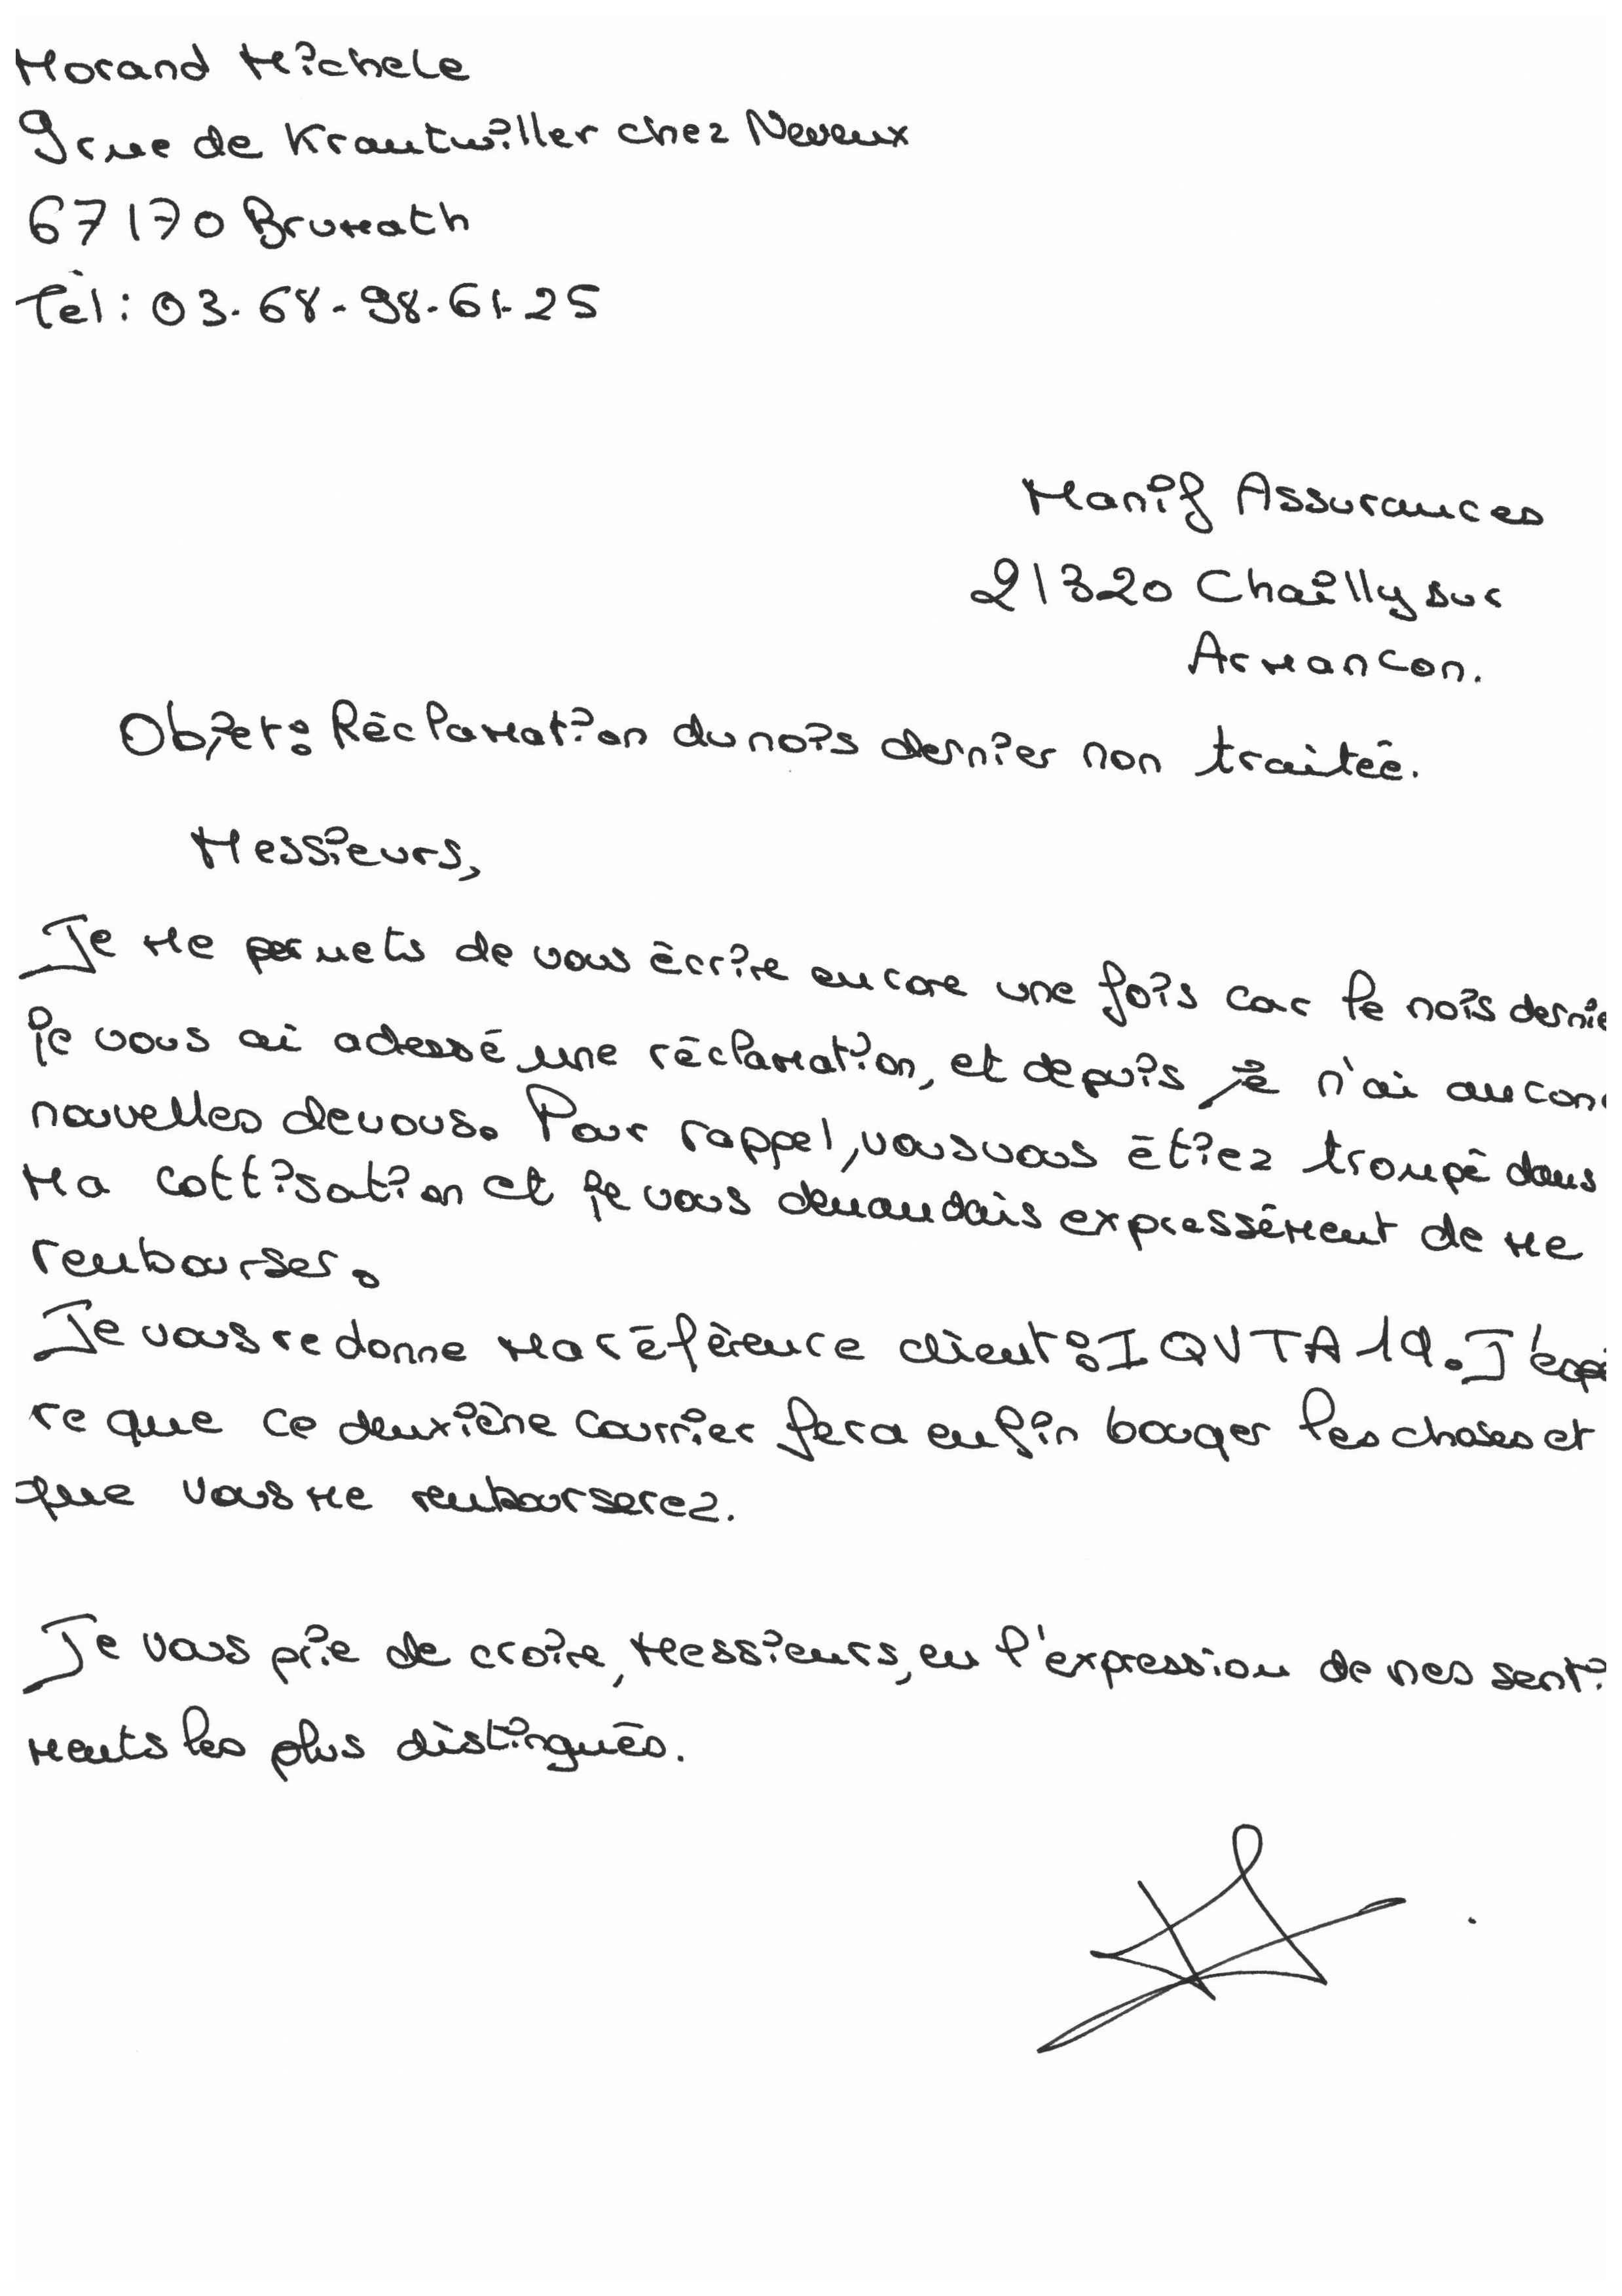 Morand Michele
9 rue de Krautwiller chez Neveux
67170 Brumath
Tél : 03. 68 - 98. 61. 25
Manif Assurances
21320 Chailly sur
Armancon.
Objet : Réclamation du mois dernier non traitée.
Messieurs,
Je me permets de vous écrire encore une fois car le mois dernie
je vous ai adessé une réclamation, et depuis je n'ai aucon
nouvelles de vous. Pour rappel, vous vous étiez troupé dans
Ma cottisation et je vous demandais expressément de me
rembourser.
Je vous redonne ma référence client : IQVTA19. J'espè
re que ce deuxième courrier fera enfin bouger les choses et
que vous me rembourserez.
Je vous prie de croire, Messieurs, en l'expression de mes senti
ments les plus distingués.